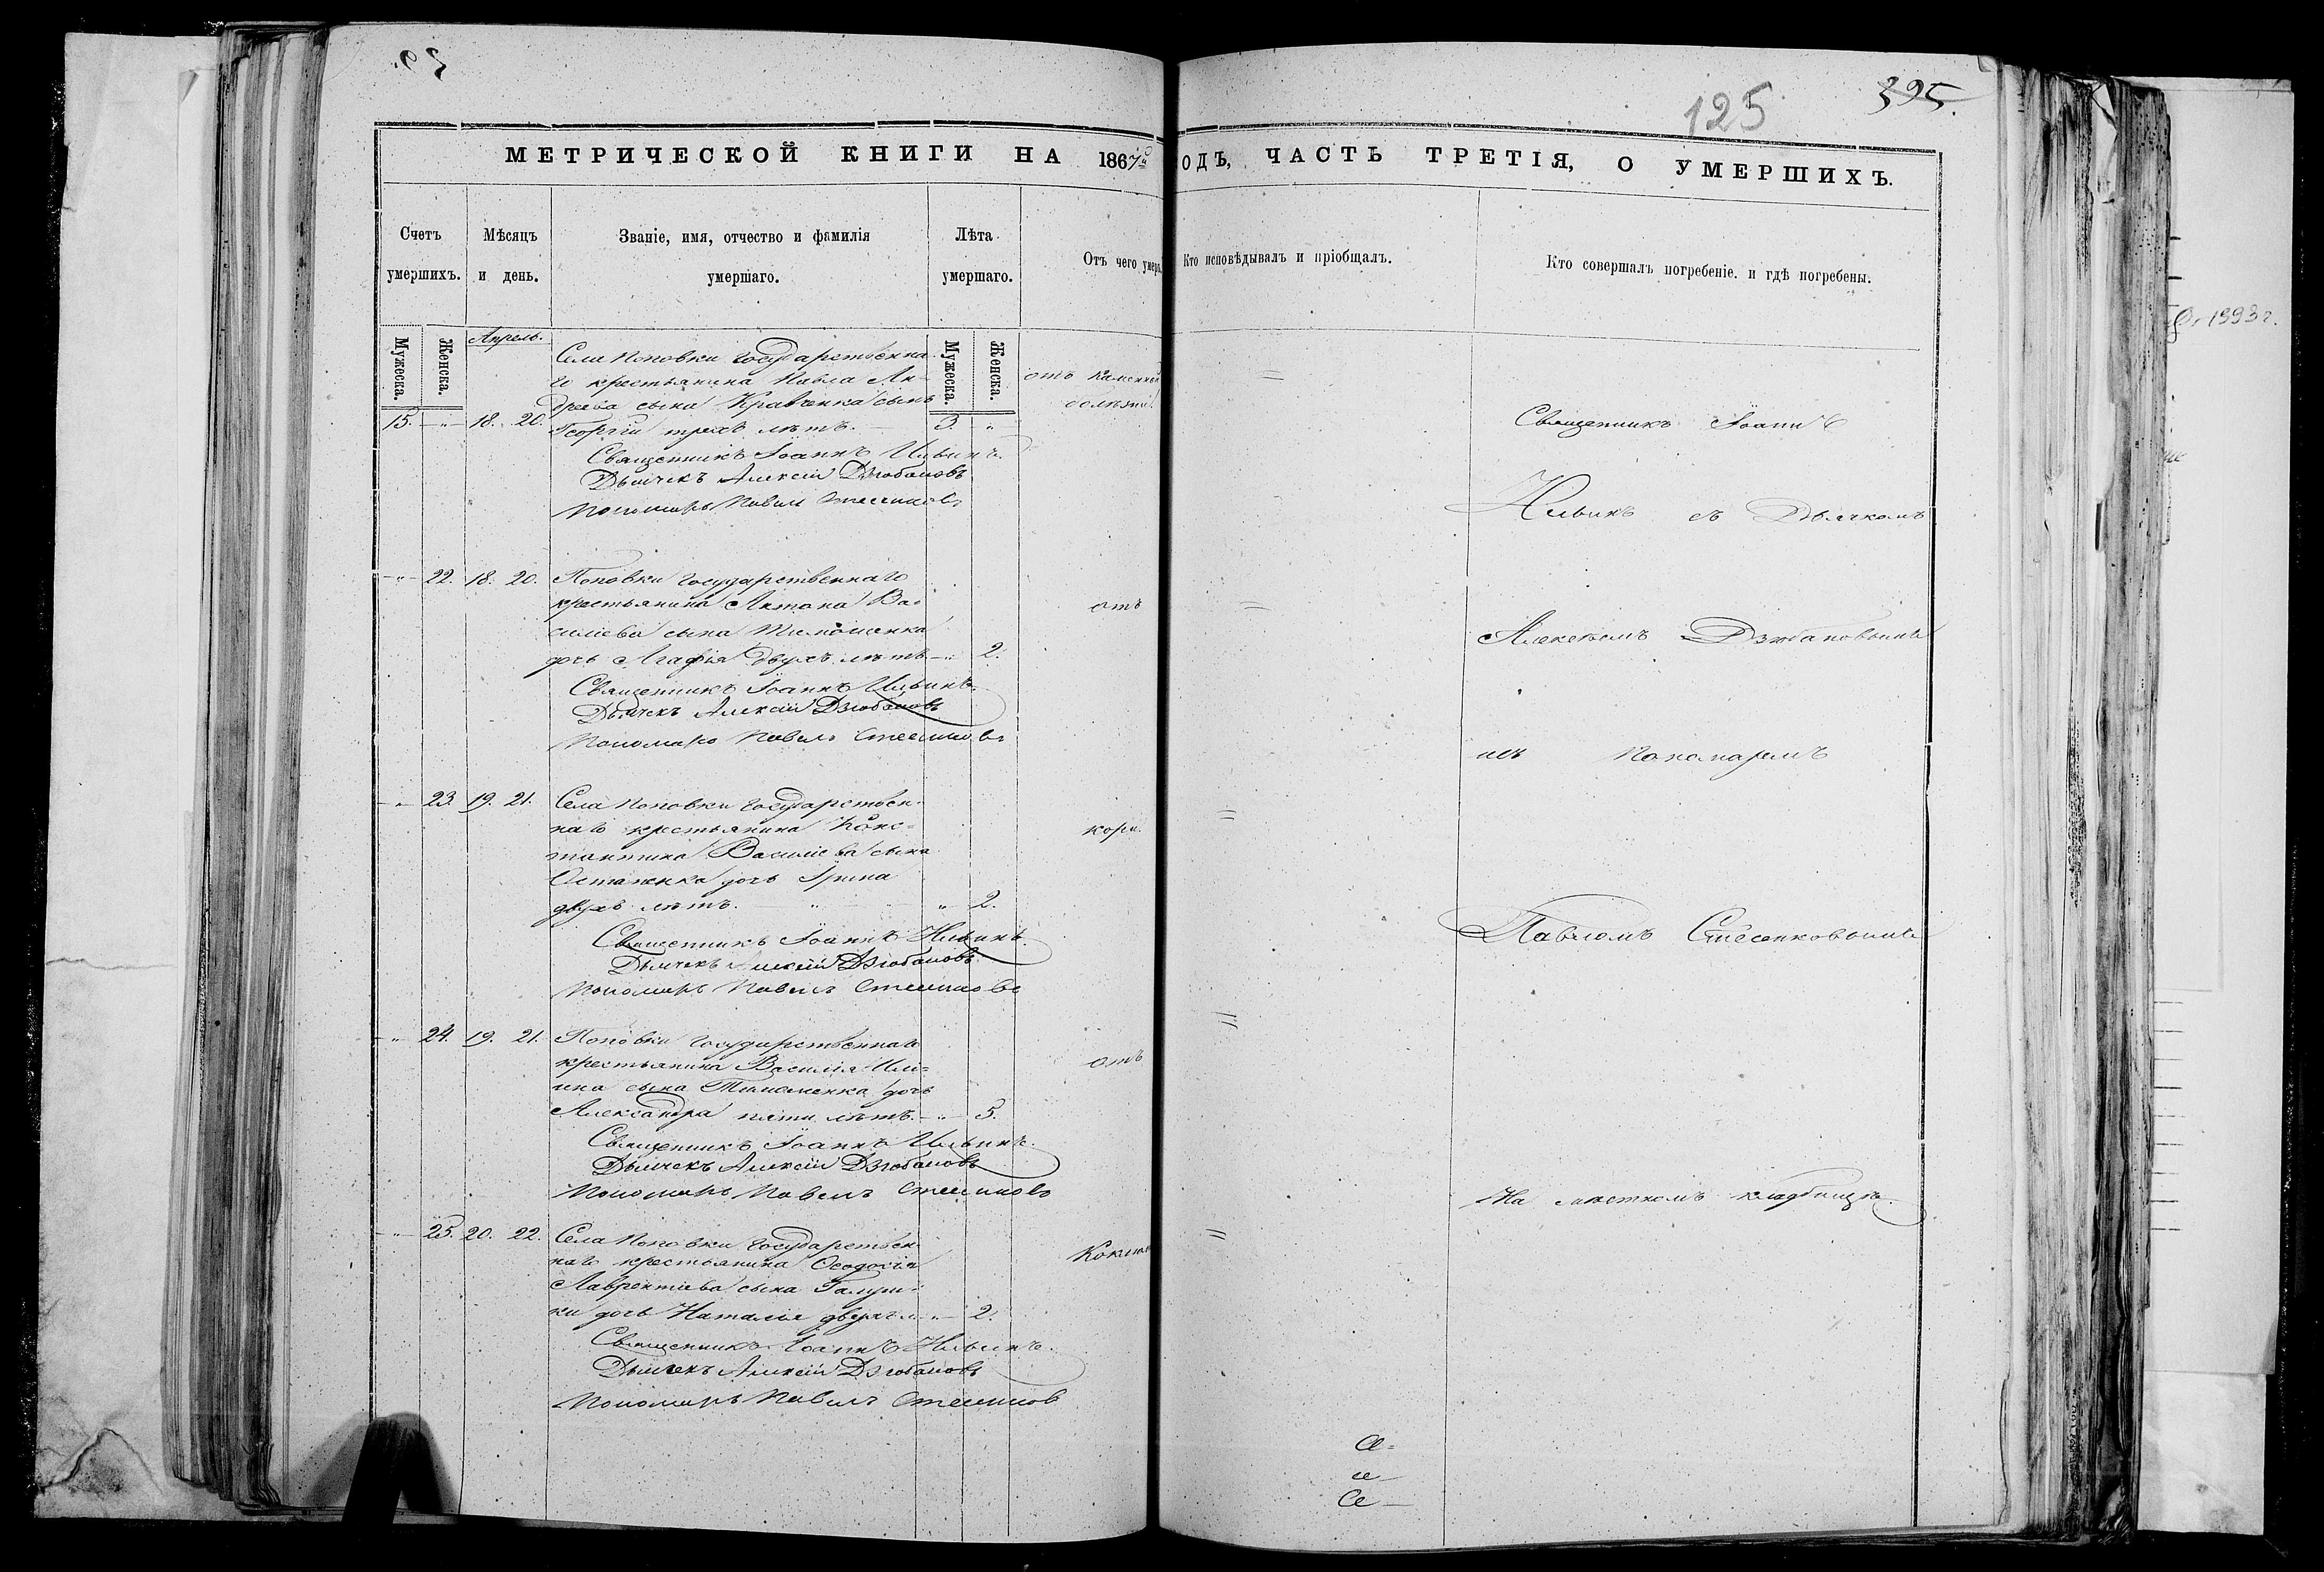 125
395.
МЕТРИЧЕСКОЙ КНИГИ НА 1867й
ОДЪ, ЧАСТЬ ТРЕТІЯ, О УМЕРШИХЪ.
Счетъ умершихъ.
Мѣсяцъ и день.
Званіе, имя, отчество и фамилія умершаго.
Лѣта умершаго.
Отъ чего умеръ
Кто исповѣдывалъ и пріобщалъ.
Кто совершалъ погребеніе. и гдѣ погребены.
Мужеска.
Женска.
Апрель.
Мужеска.
Женска.
Села Поповки Государственна-
го крестьянина Павла Ан-
дреева сына Кравченка сынъ
15. 18. 20. Георгій трехъ лѣтъ. 3.
отъ каменной
болѣзни
Священникъ Іоаннъ Ильинъ.
Дьячекъ Алексій Дзюбановъ
Пономарь Павелъ
22. 18. 20. Поповки Государственнаго
крестьянина Антона Ва-
силіева сына Тимошенка
дочь Агафія двухъ лѣтъ 2.
отъ
Священникъ Іоаннъ Ильинъ.
Дьячекъ Алексій Дзюбановъ
Пономарь Павелъ
23. 19. 21. Села Поповки Государствен-
наго крестьянина Конс-
тантина Василіева сына
Остапенка дочь Ірина
двухъ лѣтъ. 2.
кори.
Священникъ Іоаннъ Ильинъ.
Дьячекъ Алексій Дзюбановъ
Пономарь Павелъ
24. 19. 21. Поповки Государственнаго
крестьянина Василія Иль-
ина сына дочь
Александра пяти лѣтъ. 5.
отъ
Священникъ Іоаннъ Ильинъ.
Дьячекъ Алексій Дзюбановъ
Пономарь Павелъ
25. 20. 22. Села Поповки Государствен-
наго крестьянина Ѳеодосія
Лаврентіева сына Галуш-
ки дочь Наталія двухъ л. 2.
Священникъ Іоаннъ Ильинъ.
Дьячекъ Алексій Дзюбановъ
Пономарь Павелъ
Священникъ Іоаннъ
Ильинъ съ Дьячкомъ
Алексѣемъ Дзюбановымъ
Пономаремъ
Павломъ
На мѣстномъ кладбищѣ.
1993 г.